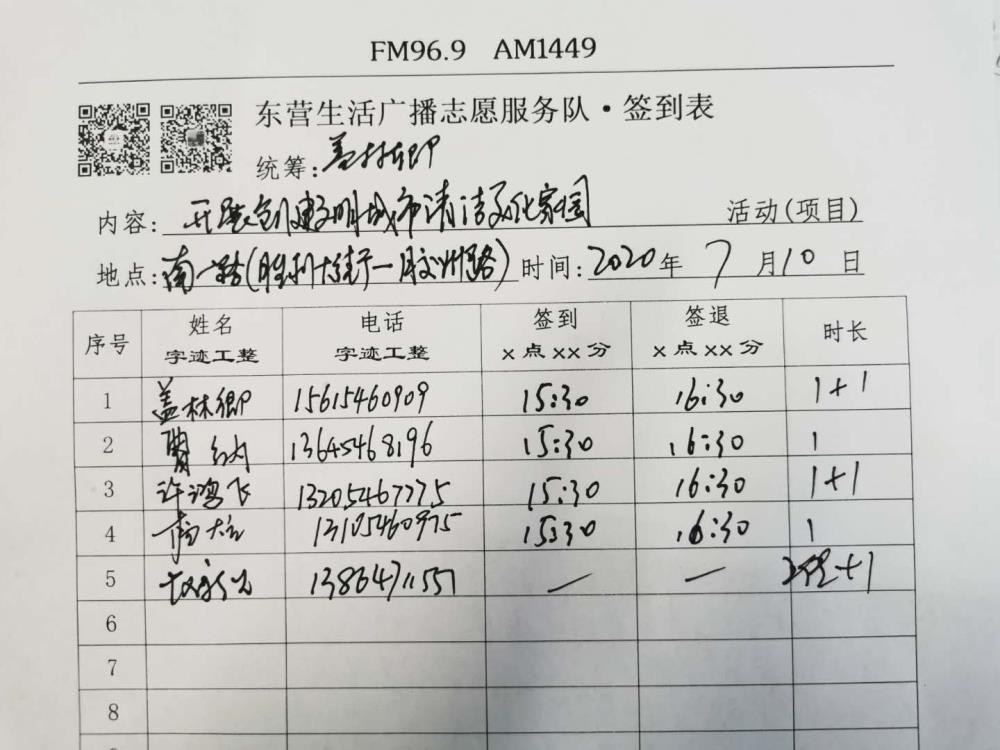 FM96.9 AM1449
东营生活广播志愿服务队·签到表
统筹:盖林卿
内容: 开展创建文明城市清洁文化家园 活动(项目)
地点:南一路(胜利大街一胶州路) 时间:2020年 7 月10 日
序号 姓名 字迹工整 电话 字迹工整 签到 x点xx分 签退 x点xx分 时长
1 盖林卿 15615460909 15:30 16:30 1+1
2 13645468196 15:30 16:30 1
3 许鸿飞 13205467775 15:30 16:30 1+1
4 13105460975 15:30 16:30 1
5 13864711551 — — +1
6
7
8